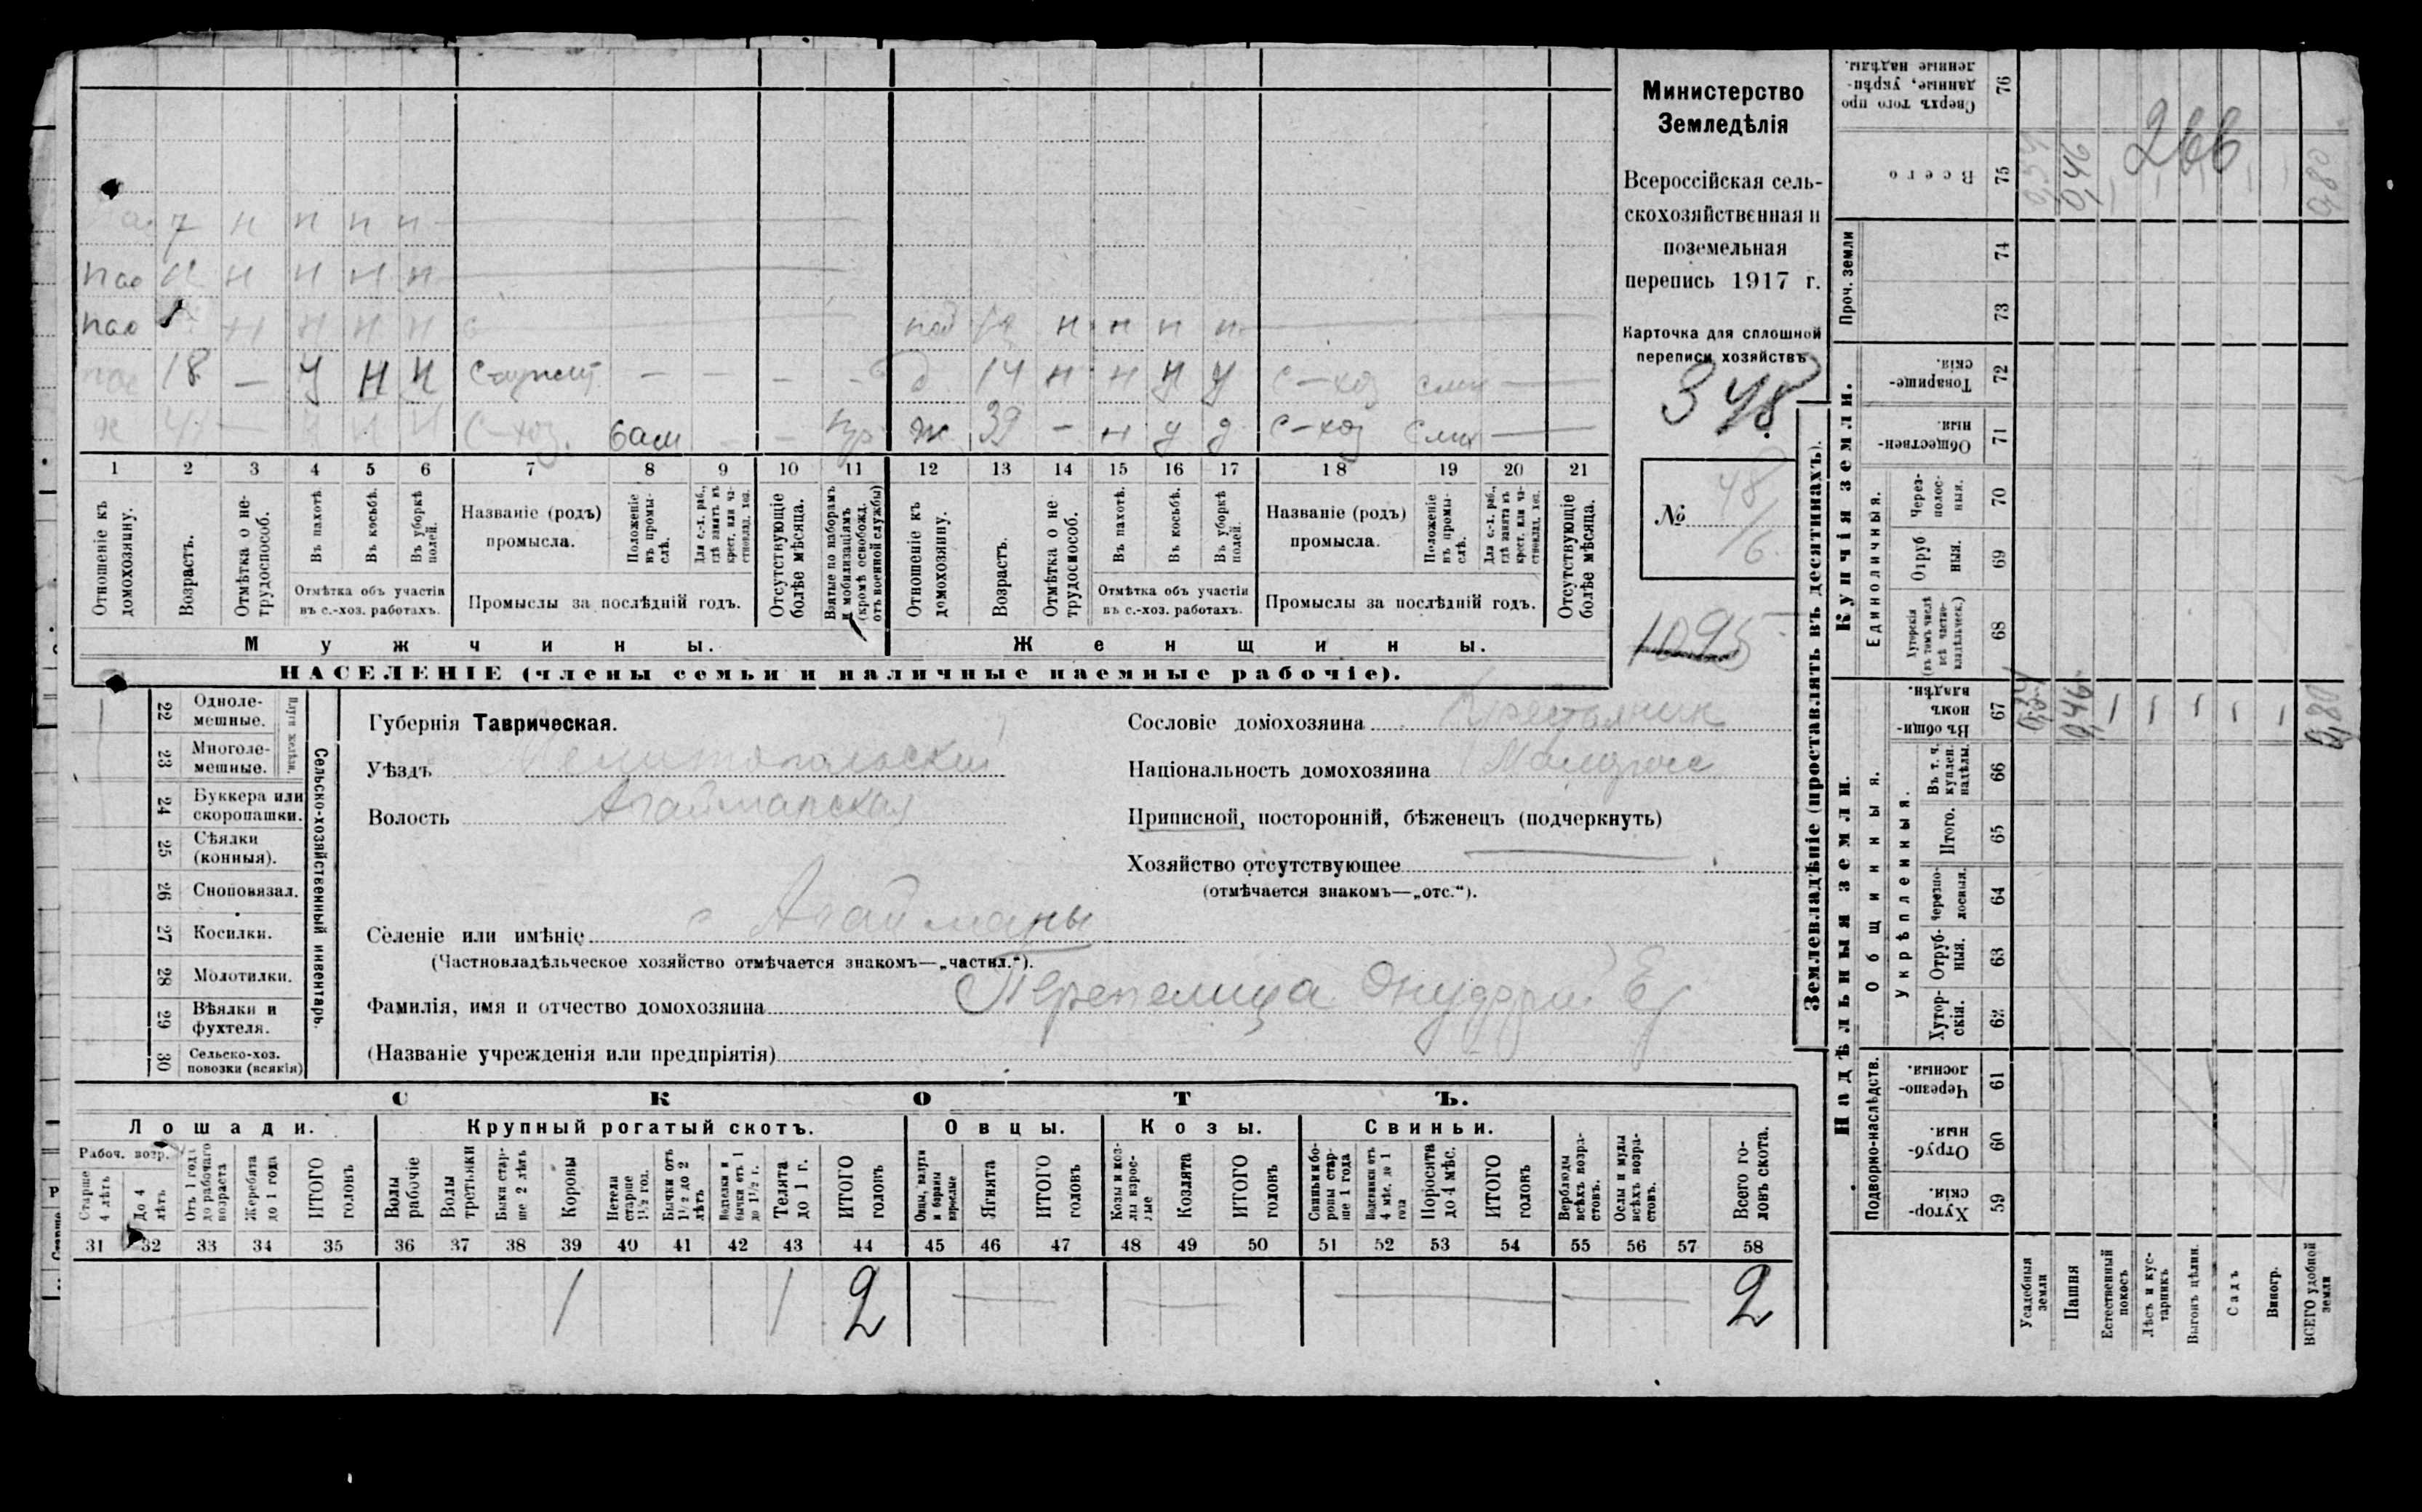 7 н н п п п
пас н н н н
пас н н н н
под н н п п
18 — у н н Служит — — — —
д 14 н н н у с-хоз
с-хоз. сам
ж 39 — н у у с-хоз
1 2 3 4 5 6 7 8 9 10 11 12 13 14 15 16 17 18 19 20 21
Отношеніе къ домохозяину.
Возрастъ.
Отмѣтка о нетрудоспособ.
Въ пахотѣ
Въ косьбѣ.
Въ уборкѣ полей.
Отмѣтка объ участіи въ с.-хоз. работахъ.
Названіе (родъ) промысла.
Положеніе въ промыслѣ.
Для с.-х. раб., гдѣ занятъ въ крест. или частновлад. хоз.
Промыслы за послѣдній годъ.
Отсутствующіе болѣе мѣсяца.
Взятые по наборамъ и мобилизаціямъ (кромѣ освобожд. отъ военной службы)
Отношеніе къ домохозяину.
Возрастъ.
Отмѣтка о нетрудоспособ.
Въ пахотѣ.
Въ косьбѣ.
Въ уборкѣ полей.
Отмѣтка объ участіи въ с.-хоз. работахъ.
Названіе (родъ) промысла.
Положеніе въ промыслѣ.
Для с.-х. раб., гдѣ занята въ крест. или частновлад. хоз.
Промыслы за послѣдній годъ.
Отсутствующіе болѣе мѣсяца.
Мужчины.
Женщины.
НАСЕЛЕНІЕ (члены семьи и наличные наемные рабочіе).
Министерство
Земледѣлія
Всероссійская сель-
скохозяйственная и
поземельная
перепись 1917 г.
Карточка для сплошной
переписи хозяйствъ
348
№ 48/6
1095
22 Одноле-
мешные.
23 Многоле-
мешные.
Плуги желѣзн.
24 Буккера или
скоропашки.
25 Сѣялки
(конныя).
26 Сноповязал.
27 Косилки.
28 Молотилки.
29 Вѣялки и
фухтеля.
30 Сельско-хоз.
повозки (всякія)
Сельско-хозяйственный инвентарь.
Губернія Таврическая.
Уѣздъ Мелитопольскій
Волость Агайманская
Селеніе или имѣніе с Агайманы
(Частновладѣльческое хозяйство отмѣчается знакомъ—„частвл.“).
Фамилія, имя и отчество домохозяина Перепелица
(Названіе учрежденія или предпріятія)
Сословіе домохозяина Крестьянин
Національность домохозяина Малорос
Приписной, посторонній, бѣженецъ (подчеркнуть)
Хозяйство отсутствующее
(отмѣчается знакомъ—„отс.“).
СКОТЪ.
Лошади.
Крупный рогатый скотъ.
Овцы.
Козы.
Свиньи.
Рабоч. возр.
Старше 4 лѣтъ
До 4 лѣтъ
Отъ 1 года до рабочаго возраста
Жеребята до 1 года
ИТОГО головъ
Волы рабочіе
Волы третьяки
Быки старше 2 лѣтъ
Коровы
Нетели старше 1½ год.
Бычки отъ 1½ до 2 лѣтъ
Телята до 1 г.
ИТОГО головъ
Овцы, валухи и бараны взрослые
Ягнята
ИТОГО головъ
Козы и козлы взрослые
Козлята
ИТОГО головъ
Свиньи и боровы старше 1 года
Подсвинки отъ 4 мѣс. до 1 года
Поросята до 4 мѣс.
ИТОГО головъ
Верблюды всѣхъ возрастовъ.
Ослы и мулы всѣхъ возрастовъ.
Всего головъ скота.
31 32 33 34 35 36 37 38 39 40 41 42 43 44 45 46 47 48 49 50 51 52 53 54 55 56 57 58
1 1 2 2
Землевладѣніе (проставлять въ десятинахъ).
Купчія земли.
Надѣльныя земли.
Проч. земли
Единоличныя.
Общинныя.
Укрѣпленныя.
Подворно-наслѣдств.
Сверхъ того проданные, укрѣпленные надѣлы. 76
Всего 75
74
73
Товарищескія. 72
Общественныя. 71
Черезполосныя. 70
Отрубныя. 69
Хуторскія (въ томъ числѣ всѣ частновладѣльческ.) 68
Въ общинномъ владѣн. 67
Въ т. ч. куплен. надѣлы. 66
Итого. 65
Черезполосныя. 64
Отрубныя. 63
Хуторскія. 62
Черезполосныя. 61
Отрубныя. 60
Хуторскія. 59
266
0,34 0,46 0,80
0,34 0,46 0,80
Усадебныя земли
Пашня
Естественный покосъ
Лѣсъ и кустарникъ
Выгонъ цѣлин.
Садъ
Виногр.
ВСЕГО удобной земли